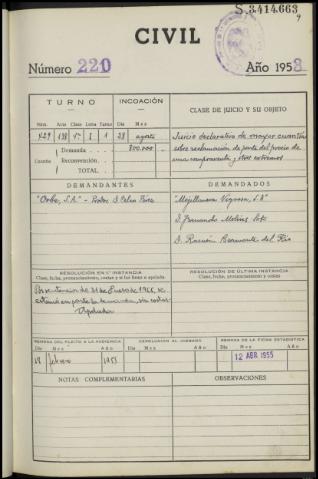 S.3414.663
9
CIVIL
Número 220 Año 1953
TURNO INCOACIÓN CLASE DE JUICIO Y SU OBJETO
Núm. Acta Clase Letra Turno Día Mes
429 138 1º 8 1 28 agosto
Cuantía Demanda 800.000
Reconvención
TOTAL
Juicio declarativo de mayor cuantía
sobre reclamación de parte del precio de
una compraventa y otros extremos
DEMANDANTES DEMANDADOS
"Orbe, S.A." - Pr
"Mejillonera Viguesa, S.A"
D. Fernando Molins Soto
D. Ramón Bermonte del Río
RESOLUCIÓN EN 1.ª INSTANCIA
Clase, fecha, pronunciamiento, costas y si fue firme o apelada
RESOLUCIÓN DE ÚLTIMA INSTANCIA
Clase, fecha, pronunciamiento y costas
Por sentencia de 31 de Enero de 1955, se
estimó en parte la demanda, sin costas
Apelada
REMESA DEL PLEITO A LA AUDIENCIA
DEVOLUCIÓN AL JUZGADO
REMESA DE LA FICHA ESTADÍSTICA
Día Mes Año Día Mes Año Día Mes Año
18 febrero 1955 12 ABR 1955
NOTAS COMPLEMENTARIAS OBSERVACIONES